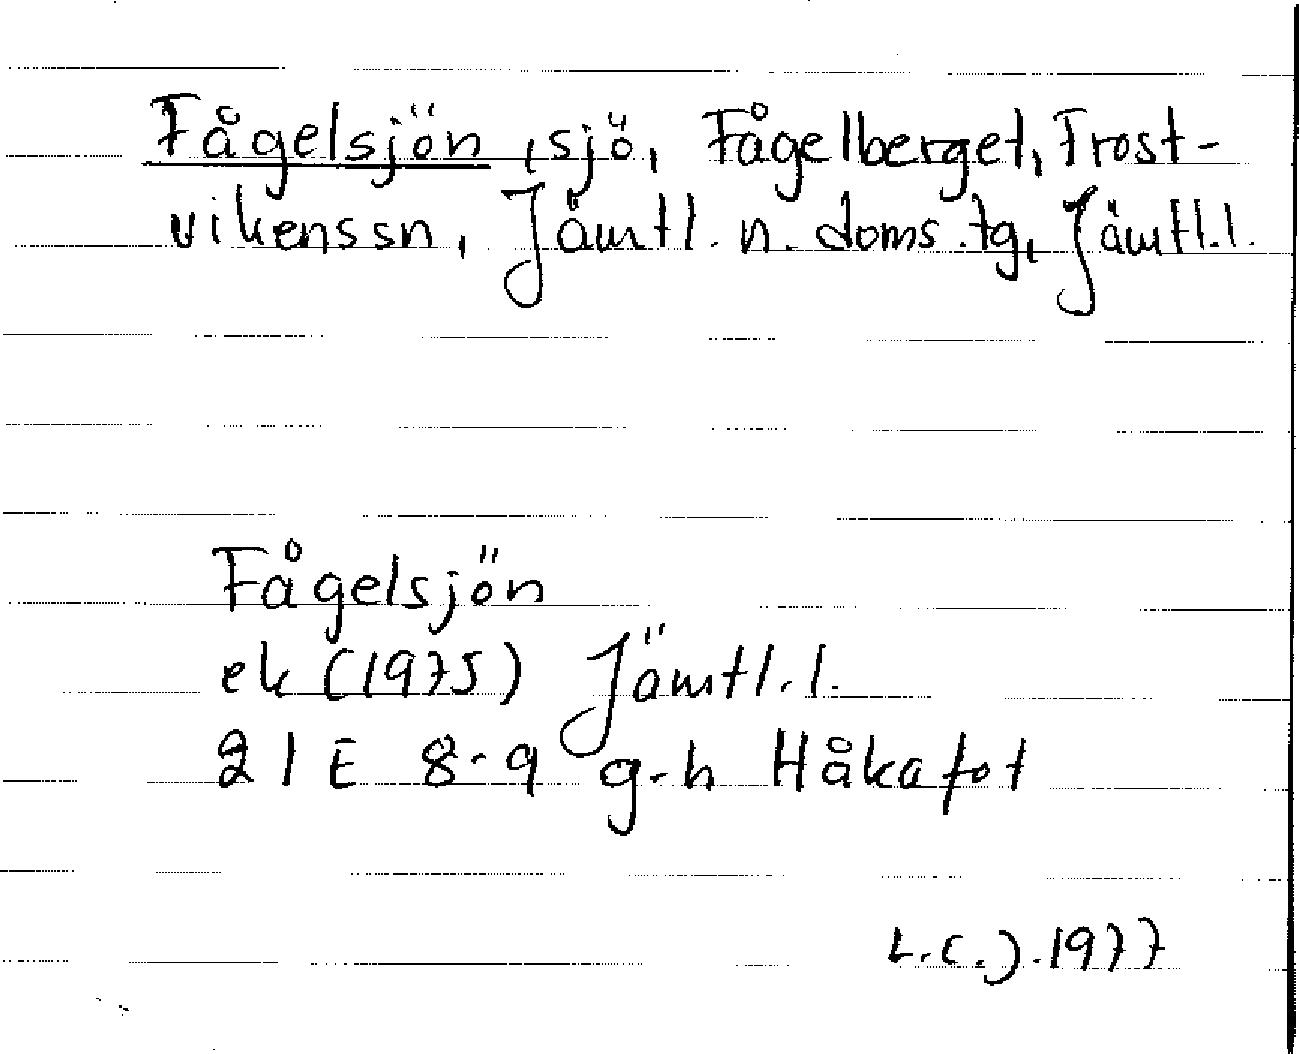 Fågelsjön, sjö, Fågelberget, Frost-
vikens sn, Jämtl. n. doms.tg, Jämtl.l.
Fågelsjön
ek (1975) Jämtl.l.
21 E 8-9 g-h Håkafot
L.C.J. 1977